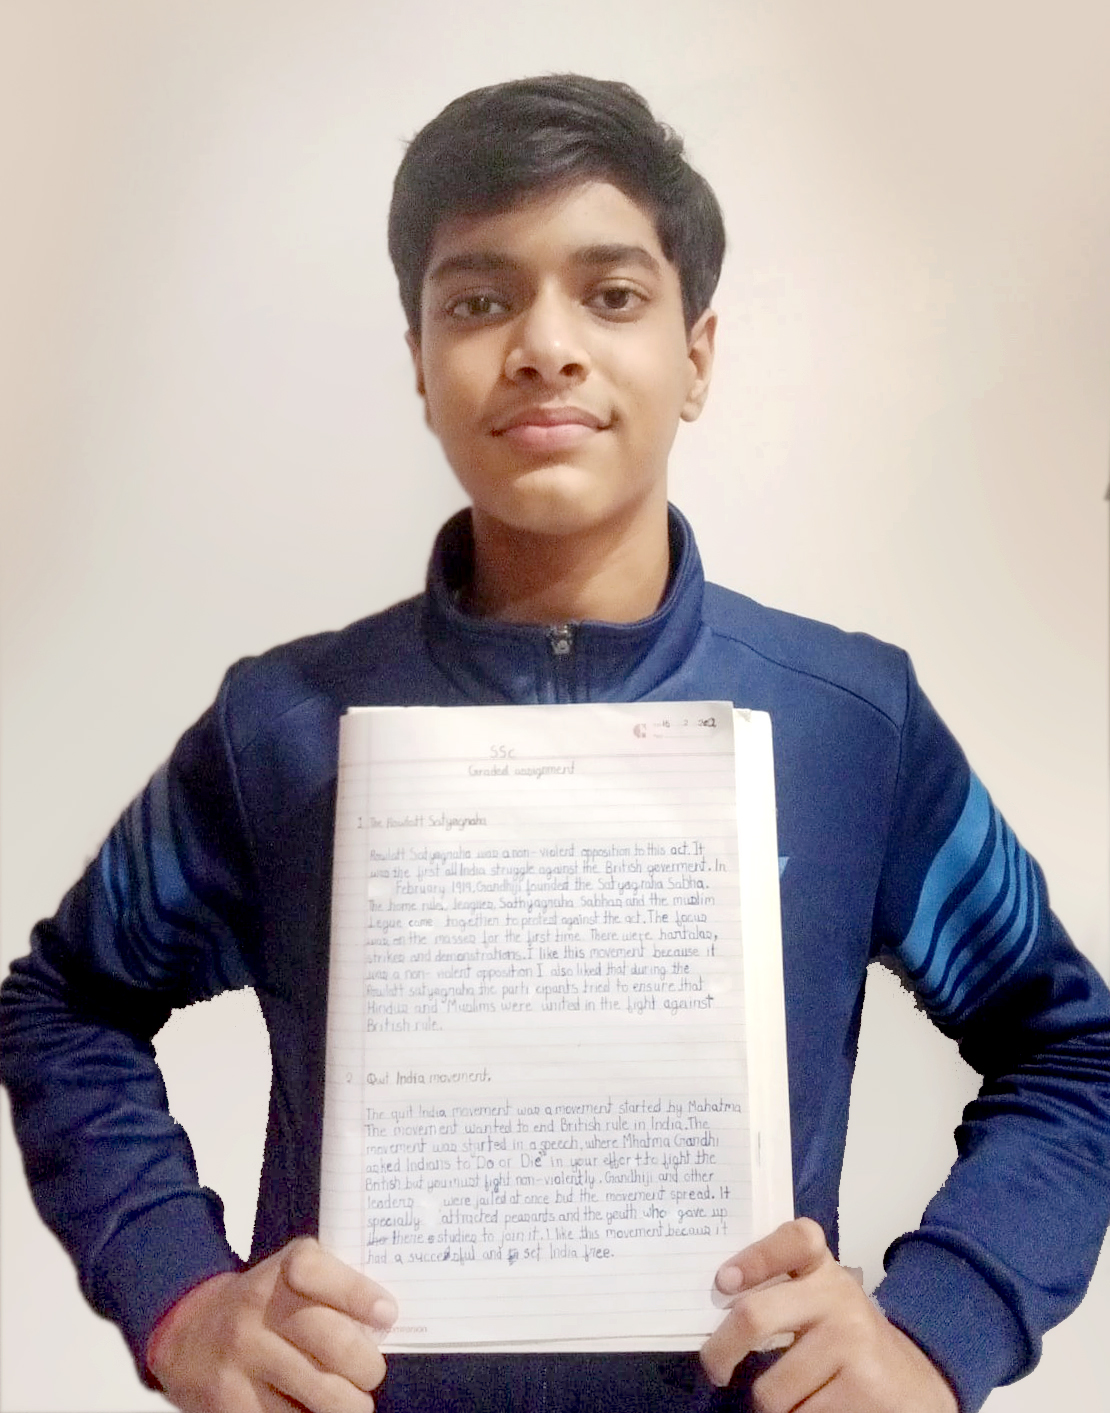 SSc
Graded assignment
1 The Rowlatt Satyagraha
Rowlatt Satyagraha was a non-violent opposition to this act. It
was the first all India struggle against the British goverment. In
February 1919, Gandhiji founded the Satyagraha Sabha.
The home rule, leagues, Sathyagraha Sabhas and the muslim
Legue came togethen to protest against the act. The focus
was on the masses for the first time. There were hartalas,
strikes and demonstrations. I like this movement because it
was a non-violent opposition I also liked that during the
Rowlatt satyagraha the parti cipants tried to ensure that
Hindus and Muslims were united in the fight against
British rule.
2 Quit India movement.
The quit India movement was a movement started by Mahatma
The movement wanted to end British rule in India. The
movement was started in a speech, where Mhatma Gandhi
asked Indians to "Do or Die" in your effort to fight the
British but you must fight non-violently. Gandhiji and other
leaders were jailed at once but the movement spread. It
specially attracted peasants and the youth who gave up
there studies to join it. I like this movement becaus it
had a succesful and set India free.